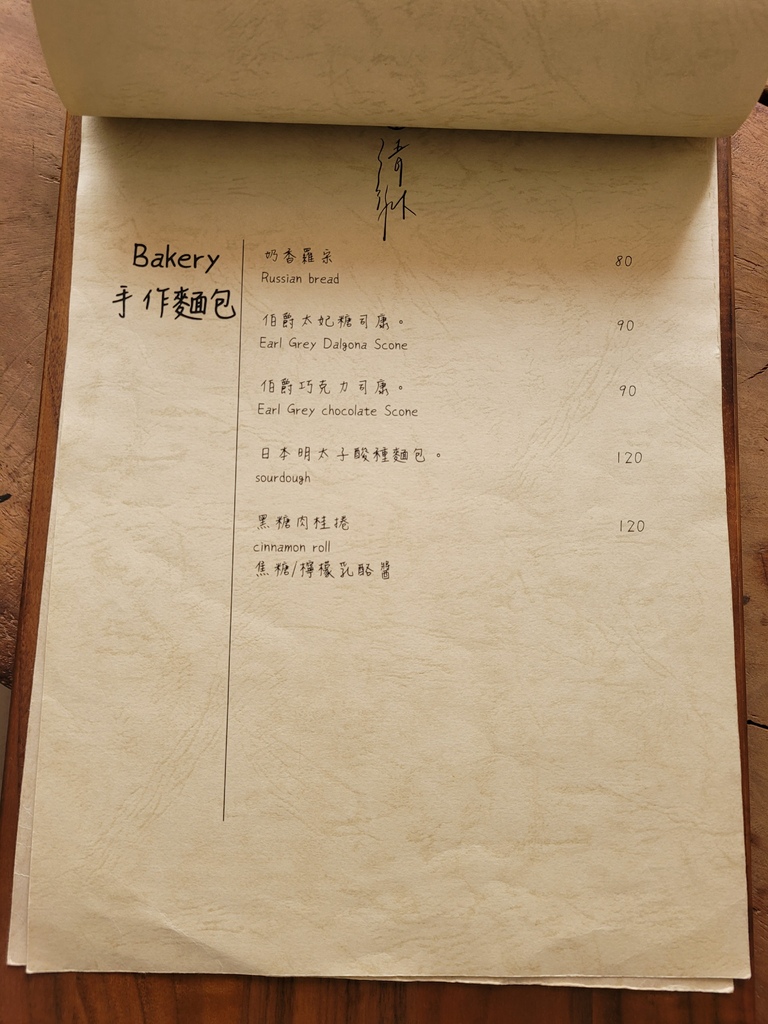 清淋
Bakery
手作麵包
奶香羅宋
80
Russian bread
伯爵太妃糖司康。
90
Earl Grey Dalgona Scone
伯爵巧克力司康。
90
Earl Grey chocolate Scone
日本明太子酸種麵包。
120
sourdough
黑糖肉桂捲
120
cinnamon roll
焦糖/檸檬乳酪醬